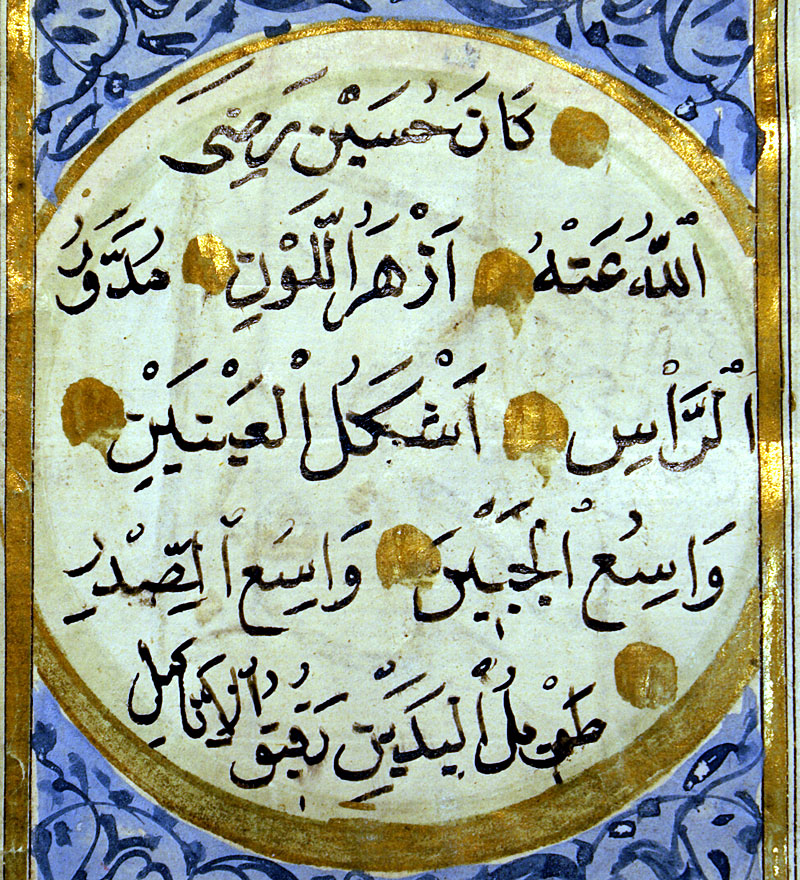 كَانَ حُسَيْن رَضِىَ
اَللّٰهُ عَنْهُ اَزْهَرُ اللَّوْنِ مُدَوَّرُ
الْرَّأْسِ اَشْكَلُ الْعَيْنَيْنِ
وَاسِعُ الْجَبِيْنِ وَاسِعُ الصِّدْرِ
طَوْيلُ الْيَدَيْنِ رَقِيقُ الْاَنَامِلِ